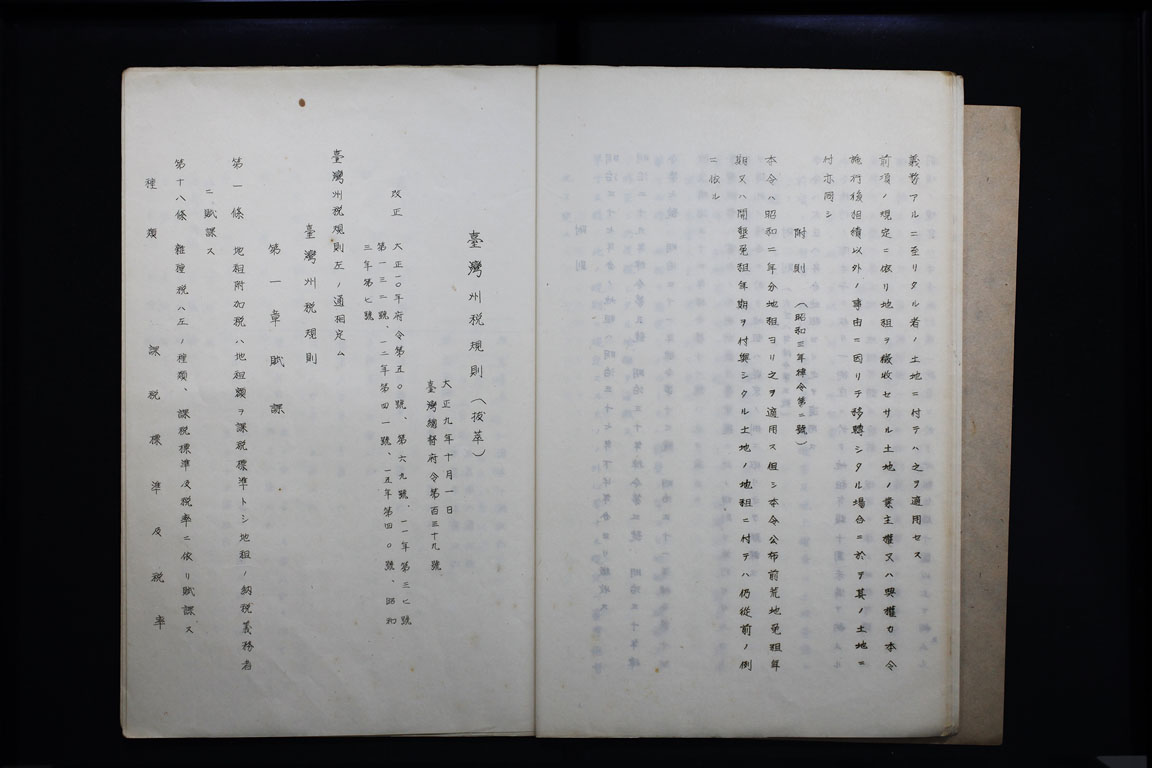 義務アルニ至リタル者ノ土地ニ付テハ之ヲ適用セス
前項ノ規定ニ依リ地租ヲ徵收セサル土地ノ業主權又ハ典權カ本令
施行後相續以外ノ事由ニ因リテ移轉シタル場合ニ於テ其ノ土地ニ
付亦同シ
附則（昭和三年律令第二號）
本令ハ昭和二年分地租ヨリ之ヲ適用ス但シ本令公布前荒地免租年
期又ハ開墾免租年期ヲ付與シタル土地ノ地租ニ付テハ仍從前ノ例
ニ依ル
臺灣州稅規則（拔萃）
大正九年十月一日
臺灣總督府令第百三十九號
改正
大正一〇年府令第五〇號、第六九號、一一年第三七號
第一三二號、一二年第四一號、一五年第四〇號、昭和
三年第七號
臺灣州稅規則左ノ通相定ム
臺灣州稅規則
第一章賦課
第一條 地租附加稅ハ地租額ヲ課稅標準トシ地租ノ納稅義務者
ニ賦課ス
第十八條 雜種稅ハ左ノ種類、課稅標準及稅率ニ依リ賦課ス
種類 課稅標準及稅率